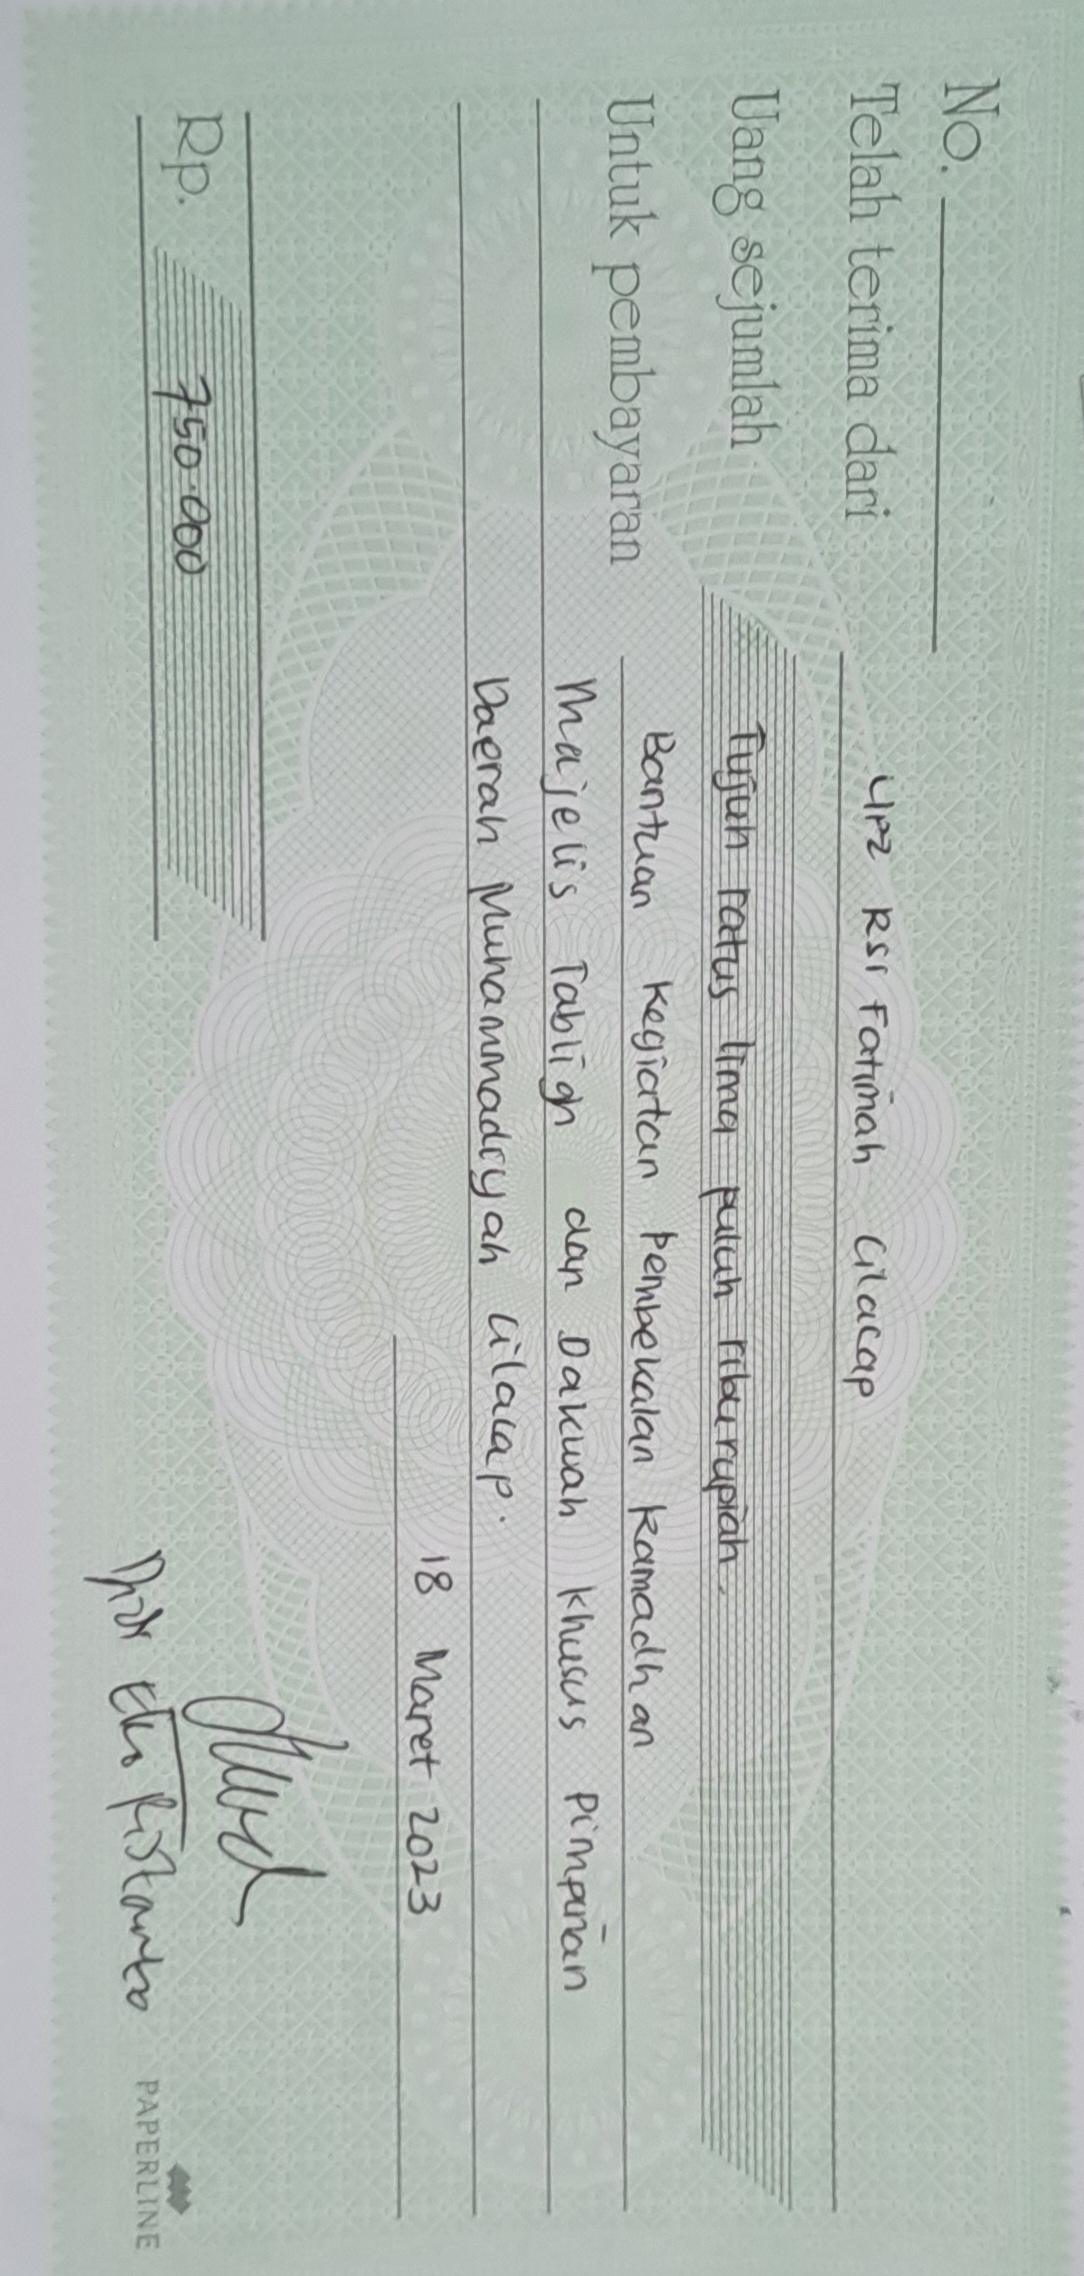 No.
Telah terima dari UPZ RSI Fatimah Cilacap
Uang sejumlah Tujuh ratus lima puluh ribu rupiah.
Untuk pembayaran Bantuan Kegiatan Pembekalan Ramadhan
Majelis Tabligh dan Dakwah Khusus Pimpinan
Daerah Muhammadiyah Cilacap.
18 Maret 2023
Rp. 750.000
PAPERLINE